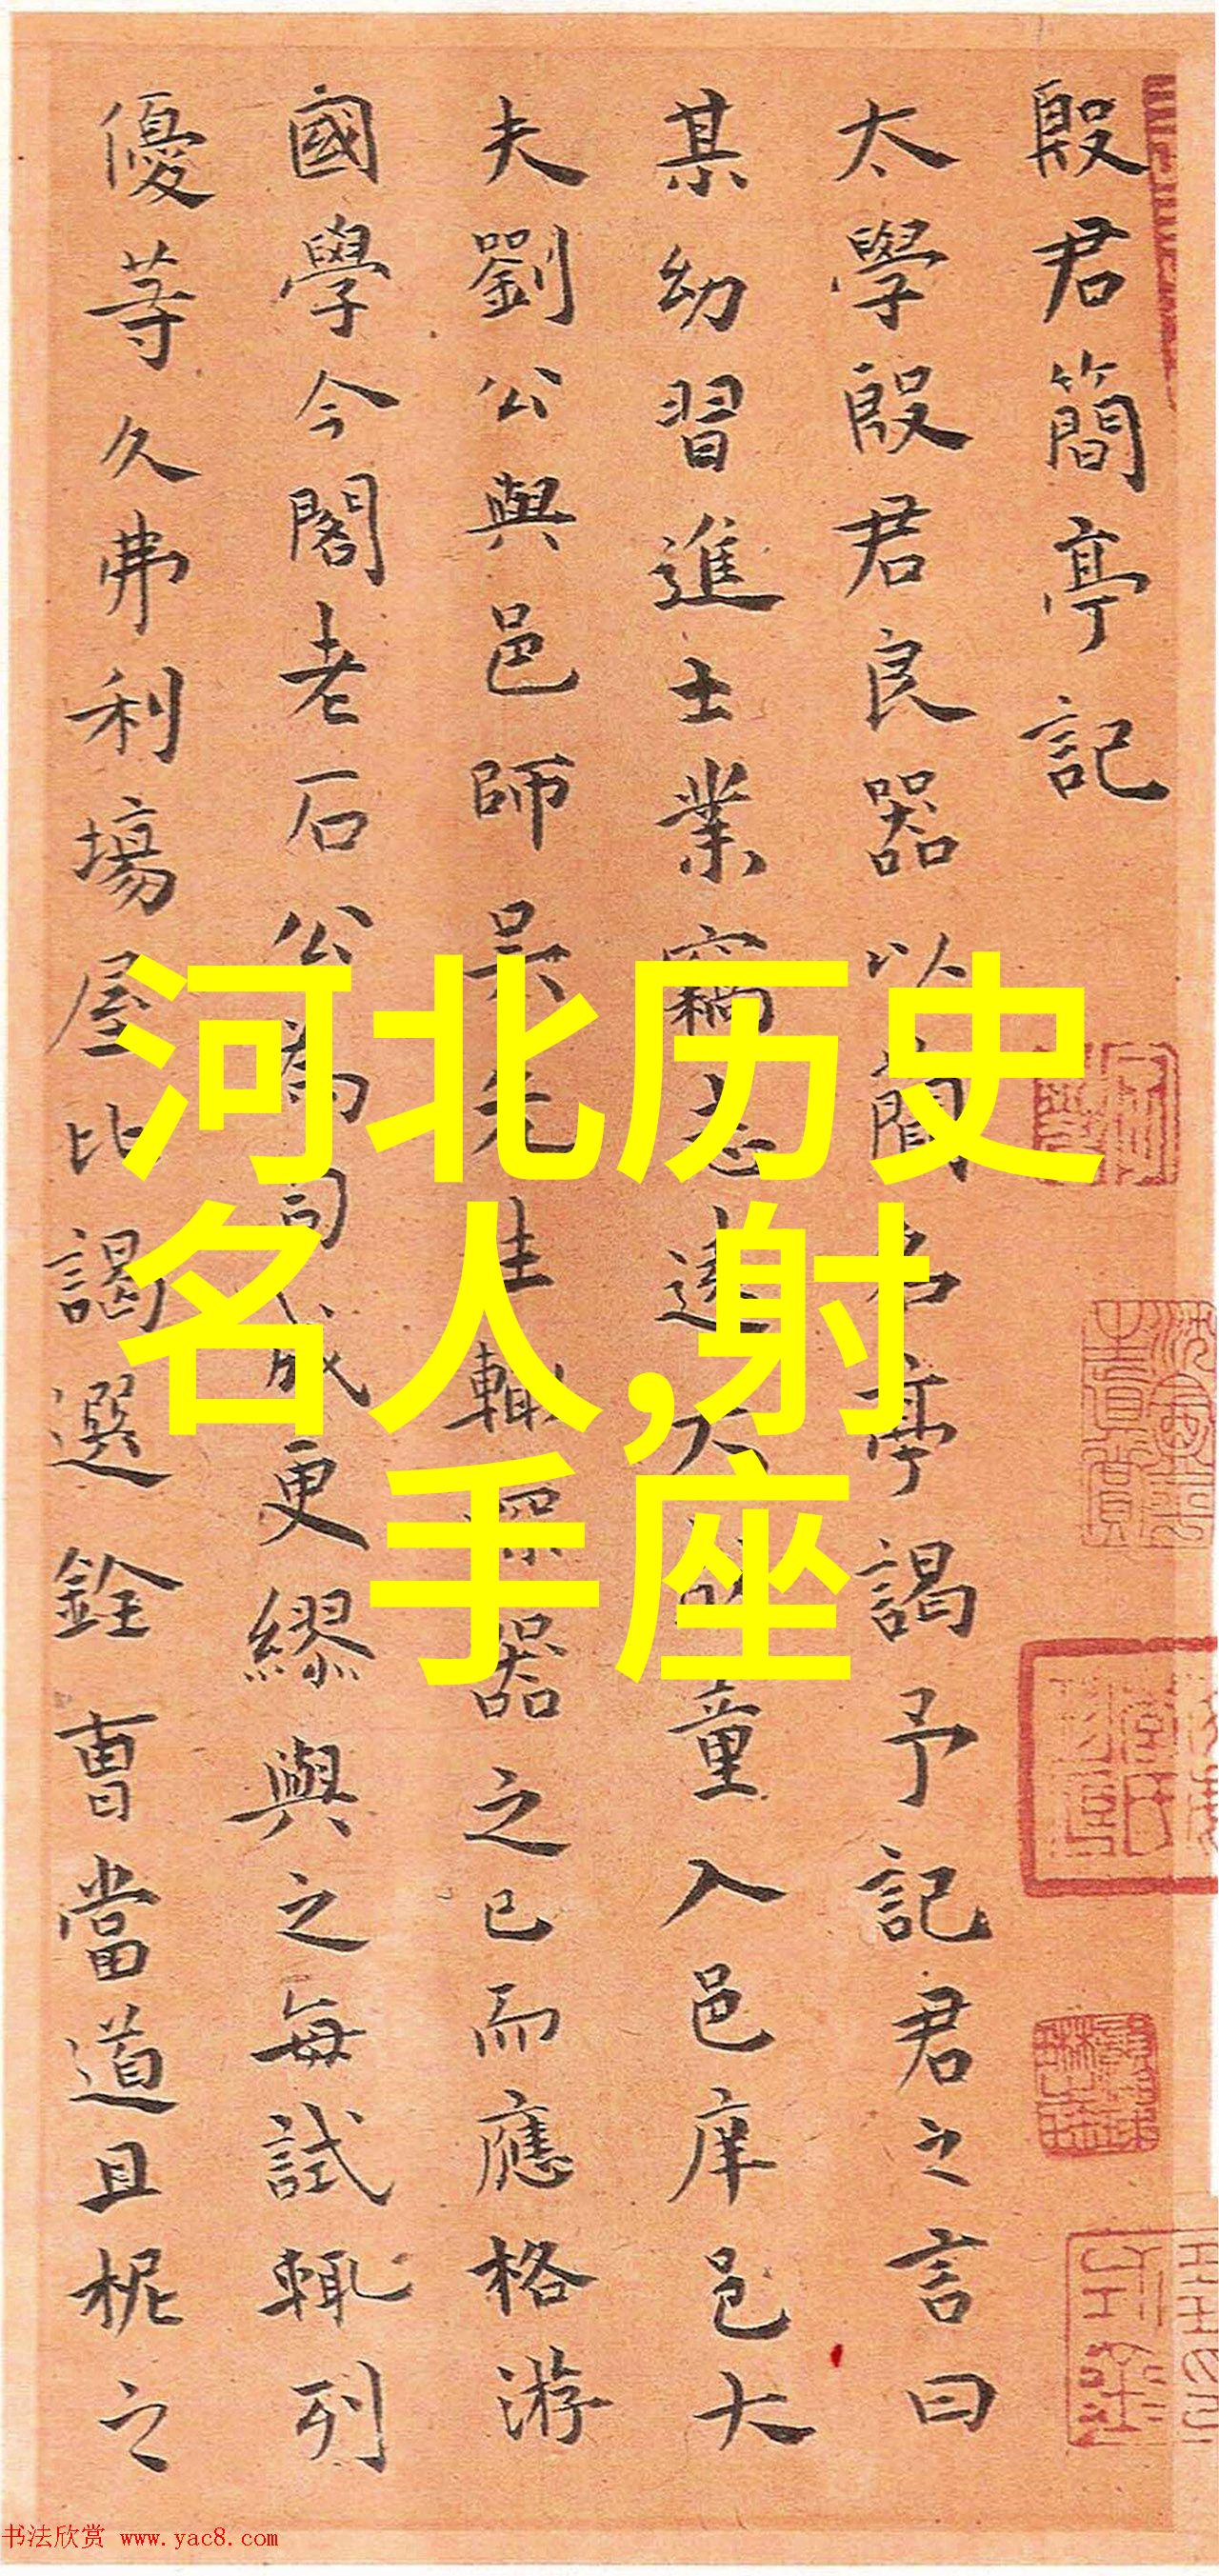 殷君簡亭記
太學殷君良器以簡名亭謁予記君之言曰
某幼習進士業竊志遠大 童入邑庠邑大
夫劉公與邑師吳先生輒深器之已而應格游
國學今閣老石公為司成更繆與之每試輒列
優等久弗利場屋比謁選銓曹當道且柅之
河北历史
名人,射
手座
书法欣赏 www.yac8.com